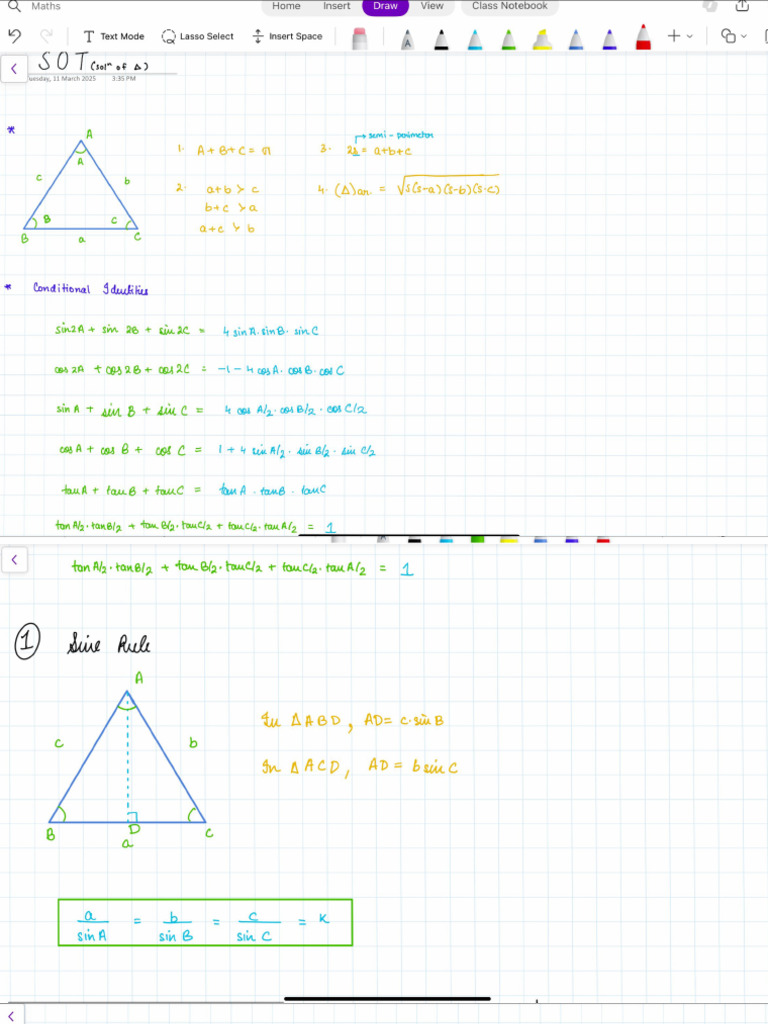 Maths
Home Insert Draw View Class Notebook
Text Mode Lasso Select Insert Space
SOT (solⁿ of Δ)
uesday, 11 March 2025 3:35 PM
*
A
A
c b
B C
B a C
1. A + B + C = π
2. a+b > c
b+c > a
a+c > b
→ semi-perimeter
3. 2s = a+b+c
4. (Δ)ar. = √s(s-a)(s-b)(s-c)
* Conditional Identities
sin2A + sin 2B + sin 2C = 4 sin A. sin B. sin C
cos 2A + cos 2B + cos 2C = -1 - 4 cos A. cos B. cos C
sin A + sin B + sin C = 4 cos A/2. cos B/2. cos C/2
cos A + cos B + cos C = 1 + 4 sin A/2. sin B/2. sin C/2
tan A + tan B + tan C = tan A. tan B. tan C
tan A/2. tan B/2 + tan B/2. tan C/2 + tan C/2. tan A/2 = 1
tan A/2. tan B/2 + tan B/2. tan C/2 + tan C/2. tan A/2 = 1
① Sine Rule
A
c b
B D C
a
In Δ ABD, AD = c. sin B
In Δ ACD, AD = b sin C
a/sin A = b/sin B = c/sin C = K